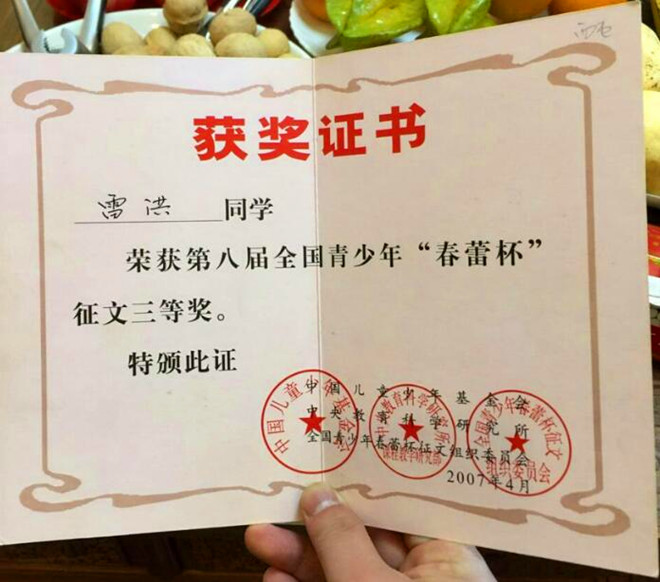 获奖证书
雷洪 同学
荣获第八届全国青少年“春蕾杯”
征文三等奖。
特颁此证
中国儿童少年基金会
中央教育科学研究所
全国青少年春蕾杯征文组织委员会
2007年4月
中国儿童少年基金会
中央教育科学研究所
课程教学研究部
全国青少年春蕾杯征文
组织委员会